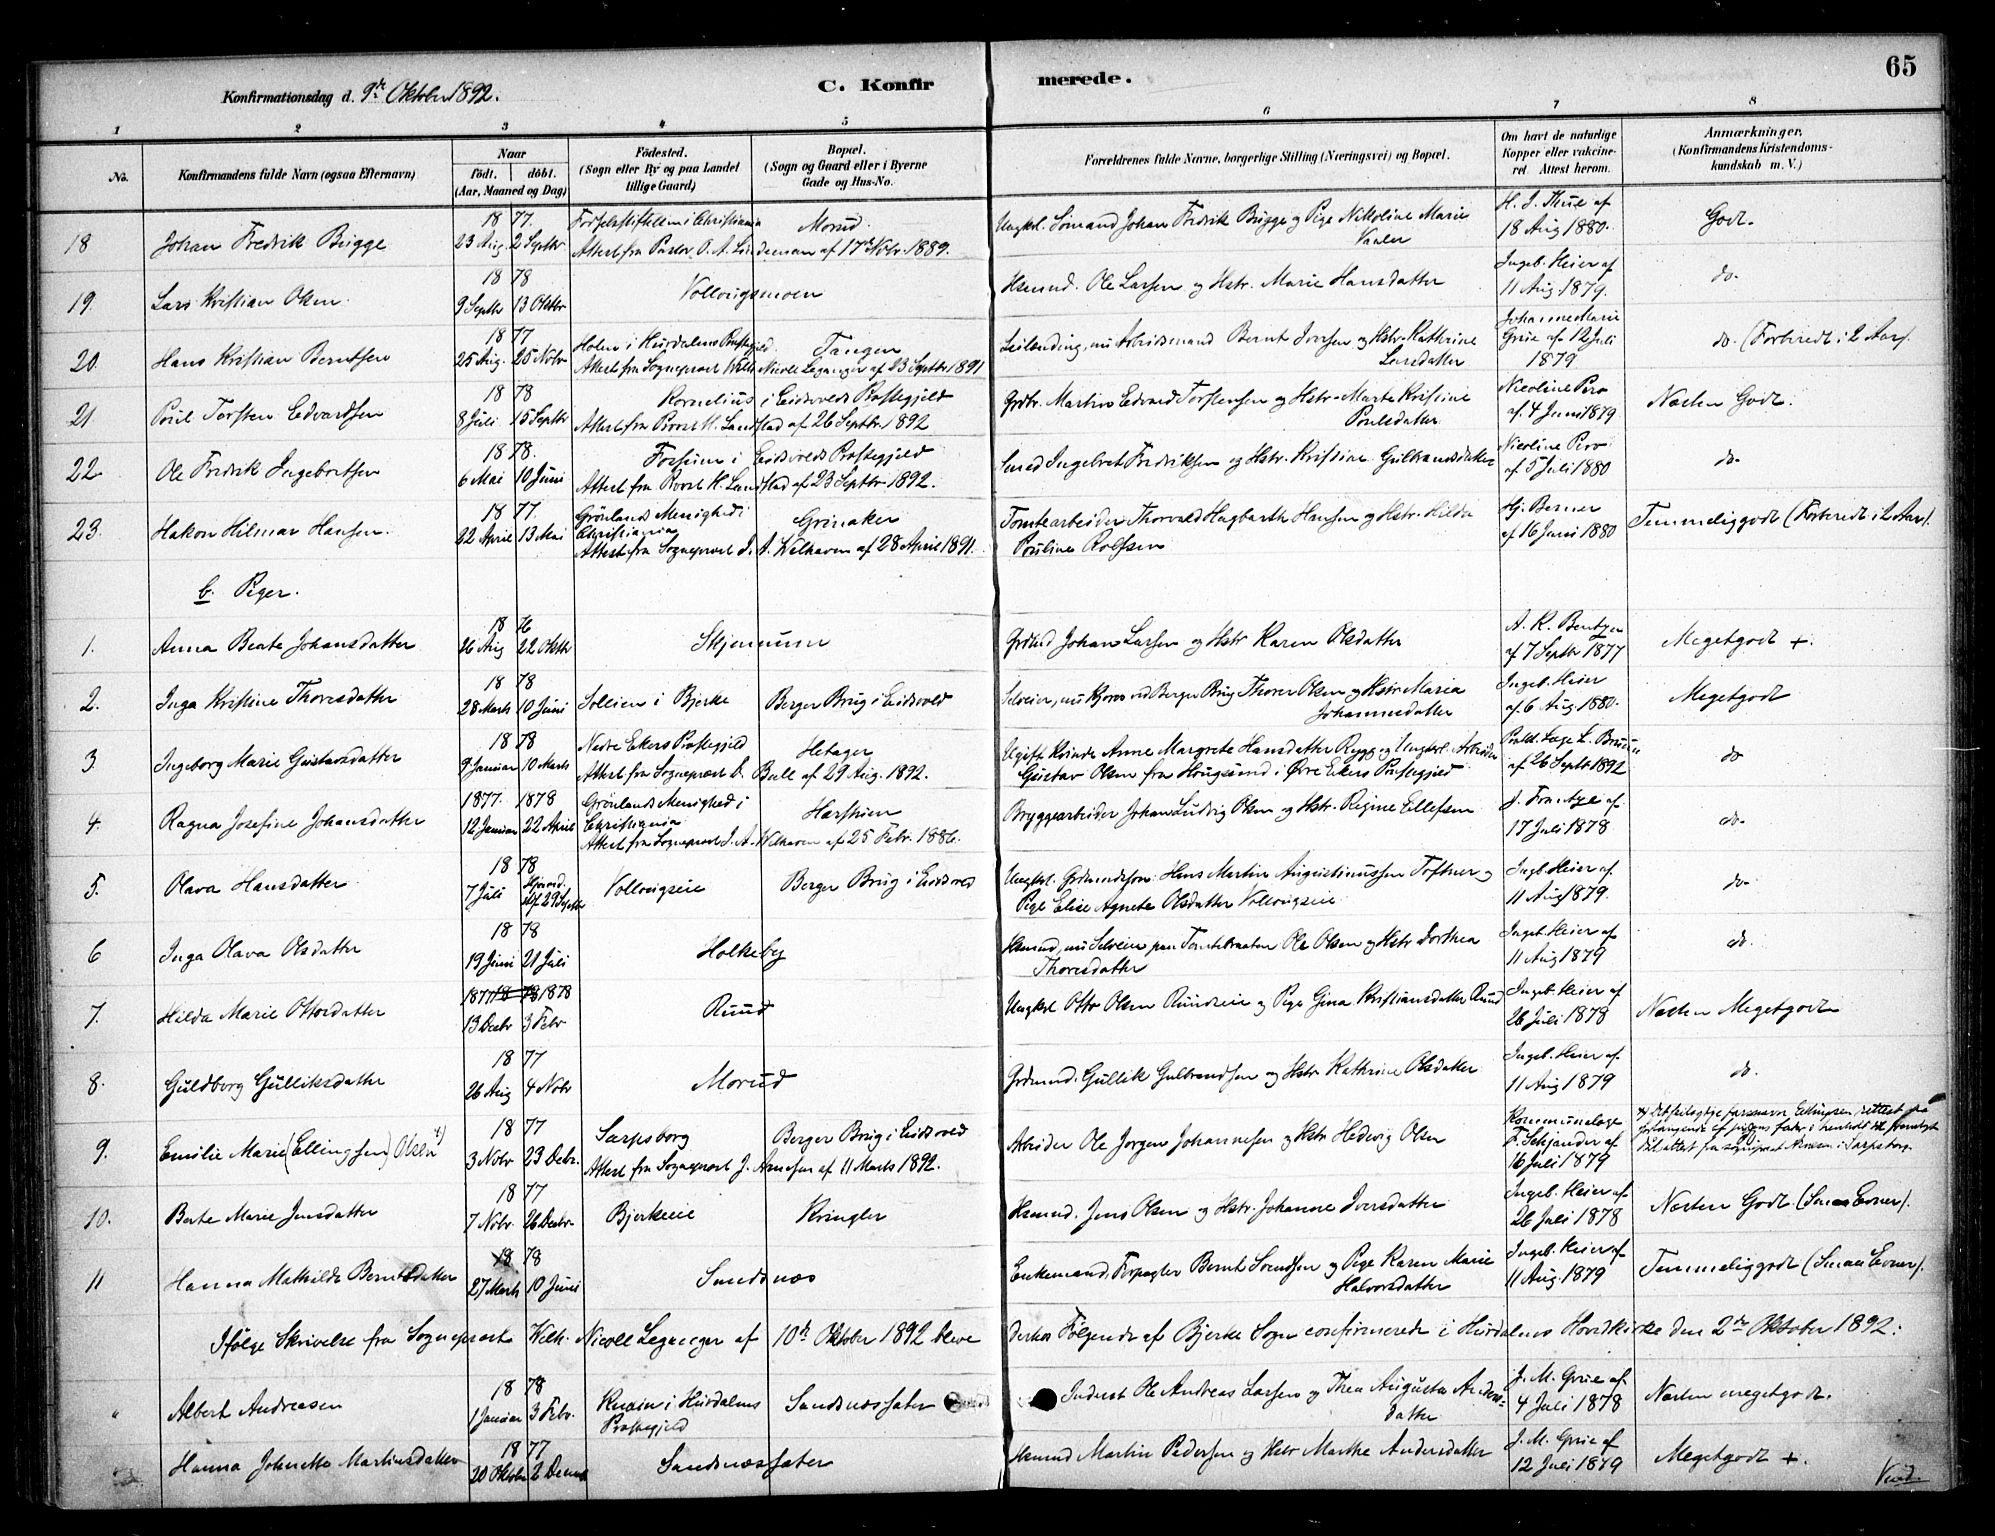 65
Konfirmationsdag d. 9de Oktober 1892.
C. Konfirmerede.
1 2 3 4 5 6 7 8
No.
Konfirmandens fulde Navn (ogsaa Efternavn)
Naar
födt. döbt.
(Aar, Maaned og Dag)
Födested.
(Sogn eller By og paa Landet
tillige Gaard)
Bopæl.
(Sogn og Gaard eller i Byerne
Gade og Hus-No.
Forældrenes fulde Navne, borgerlige Stilling (Næringsvei) og Bopæl.
Om havt de naturlige
Kopper eller vakcine-
ret Attest herom.
Anmærkninger.
(Konfirmandens Kristendoms-
kundskab m. V.)
18 Johan Fredrik Brügge
18 77
23 Aug. 2 Septbr
Fødselsstiftelsen i Christiania
Morud.
Attest fra Pastor O. A. Lindeman af 17de Novbr. 1889.
Ungkl. Sömand Johan Fredrik Brügge og Pige Nikoline Marie
Vaaler
H. J. Thue af
18 Aug 1880.
Godt.
19. Lars Kristian Olsen.
18 78
9 Septbr 13 Oktbr
Vollaugsmoen
Husmd. Ole Larsen og Hstr. Marie Hansdatter
Ingeb. Heier af
11 Aug. 1879.
do.
20. Hans Kristian Berntsen
18 77
25 Aug. 25 Novbr
Holm i Hurdalens Præstegjeld
Tangen
Attest fra Sogneprest Wilh. Nicoll Leganger af 23 Septbr 1891
Leilending, nu Arbeidsmand Bernt Iversen og Hstr. Kathrine
Larsdatter
Johanne Marie
Grue af 12 Juli
1879
do. (Forberedt i 2 Aar).
21 Poul Torsten Edvardsen
18 78
8 Juli 15 Septbr
Kornelius i Eidsvolds Præstegjeld
Attest fra Provst H. Landstad af 26 Septbr. 1892
Grdbr. Martin Edvard Torstensen og Hstr. Marte Kristine
Poulsdatter
Nicoline Pero
af 4 Juni 1879
Næsten Godt.
22. Ole Fredrik Ingebretsen
18 78.
6 Mai 10 Juni
i Eidsvolds Præstegjeld
Attest fra Provst H. Landstad af 23 Septbr 1892.
Ingebret Fredriksen og Hstr. Kristine Gulbrandsdatter
Nicoline Pero
af 5 Juli 1880
do.
23. Hakon Hilmar Hansen.
18 77.
22 April 13 Mai
Grönlands Menighed i
Christiania
Grinaker
Attest fra Sogneprest J. A. Welhaven af 28 April 1891.
Tomtearbeider Thorvald Hagbarth Hansen og Hstr. Hilda
Pouline Rolfsen
Hj. Berner
af 16 Juni 1880
Temmeliggodt (Forberedt i 2 Aar).
b. Piger.
1. Anna Beate Johansdatter
18 76
26 Aug 22 Oktbr
Skjennum
Grdmd Johan Larsen og Hstr Karen Olsdatter
A. K. Bentzen
af 7 Septbr 1877
Megetgodt +.
2. Inga Kristine Thoresdatter
18 78
28 Marts 10 Juni
Sollien i Bjerke
Berger Brug i Eidsvold
Selveier, nu ved Berger Brug Thorer Olsen og Hstr. Maria
Johannesdatter
Ingeb. Heier
af 6 Aug. 1880.
Megetgodt
3. Ingeborg Marie Gustavsdatter
18 78
9 Januar 10 Marts
Nedre Ekers Præstegjeld
Hetager
Attest fra Sogneprest Bull af 29 Aug. 1892.
Ugift Kvinde Anne Margrete Hansdatter Rygg og Ungkrl. Arbeider
Gustav Olsen fra Hougsund i Øvre Ekers Præstegjeld
Læge L. Bruun
af 26 Septbr 1892
do
4. Ragna Josefine Johansdatter
1877. 1878
12 Januar 22 April
Grönlands Menighed i
Christiania
Hærstuen
Attest fra Sogneprest J. A. Welhaven af 25 Febr. 1886.
Bryggearbeider Johan Ludvig Olsen og Hstr. Regine Ellefsen
17 Juli 1878
do.
5. Olava Hansdatter
18 78
7 Juli Hjemmd. 29 Septbr
Vollaugseie
Berger Brug i Eidsvold
Ungkl. Grdmandssön Hans Martin Augustinussen Toftner og
Pige Elise Agnete Olsdatter Vollaugseie
Ingb. Heier af
11 Aug 1879.
do.
6 Inga Olava Olsdatter
18 78
19 Juni 21 Juli
Holkeby
Husmd, nu Selveier paa Tomtebraaten Ole Olsen og Hstr Dorthea
Thoresdatter
Ingeb. Heier af
11 Aug 1879
do.
7. Hilda Marie Ottosdatter
1877 18 78 1878
13 Decbr 3 Febr
Ruud
Ungkrl Otto Olsen Ruudseie og Pige Gina Kristiansdatter Ruud
Ingeb. Heier af
26 Juli 1878
Næsten Megetgodt
8. Guldborg Gulliksdatter
18 77
26 Aug 4 Novbr
Morud
Grdmd. Gullik Gulbrandsen og Hstr Kathrine Olsdatter
Ingeb. Heier af
11 Aug 1879
do.
9. Emilie Marie (Ellingsen) Olsen *)
18 77
3 Novbr 23 Decbr.
Sarpsborg
Berger Brug i Eidsvold
Attest fra Sogneprest J. Arnesen af 11 Marts 1892.
Arbeider Ole Jörgen Johannesen og Hstr Hedvig Olsen
Kommunelæge
F. Schjander af
16 Juli 1879
*) Det feilagtige farsnavn Ellingsen rettet paa
forlangende af pigens fader i henhold til fremlagt
dåbattest fra sogneprest Arnesen i Sarpsborg.
10. Berte Marie Jensdatter
18 77
7 Novbr. 26 Decbr.
Bjerkeeie
Kringler
Husmd. Jens Olsen og Hstr. Johanne Iversdatter
Ingeb. Heier af
26 Juli 1878
Næsten Godt. (Smaa Evner).
11 Hanna Mathilde Berntsdatter
18 78
27 Marts 10 Juni
Sandsnæs
Enkemand, Forpagter Bernt Svendsen og Pige Karen Marie
Halvorsdatter
Ingeb. Heier af
11 Aug. 1879
Temmeliggodt (Smaa Evner).
Ifölge Skrivelse fra Sogneprest Wilh. Nicoll Leganger af 10de Oktober 1892 bleve desuden Fölgende af Bjerke Sogn confirmerede i Hurdalens Hovedkirke den 2den Oktober 1892:
" Albert Andreasen
18 78
1 Januar 3 Febr.
i Hurdalens
Præstegjeld
Sandsnæssæter
Inderst Ole Andreas Larsen og Thea Augusta Anders-
datter
J. M. Grue af
4 Juli 1878
Næsten megetgodt.
Hanna Johnette Martinsdatter
18 77
20 Oktober 2 Decemb
Sandsnæssæter
Husmd Martin Pedersen og Hstr Marthe Andersdatter
J. M. Grue af
12 Juli 1879
Megetgodt +.
Vend.